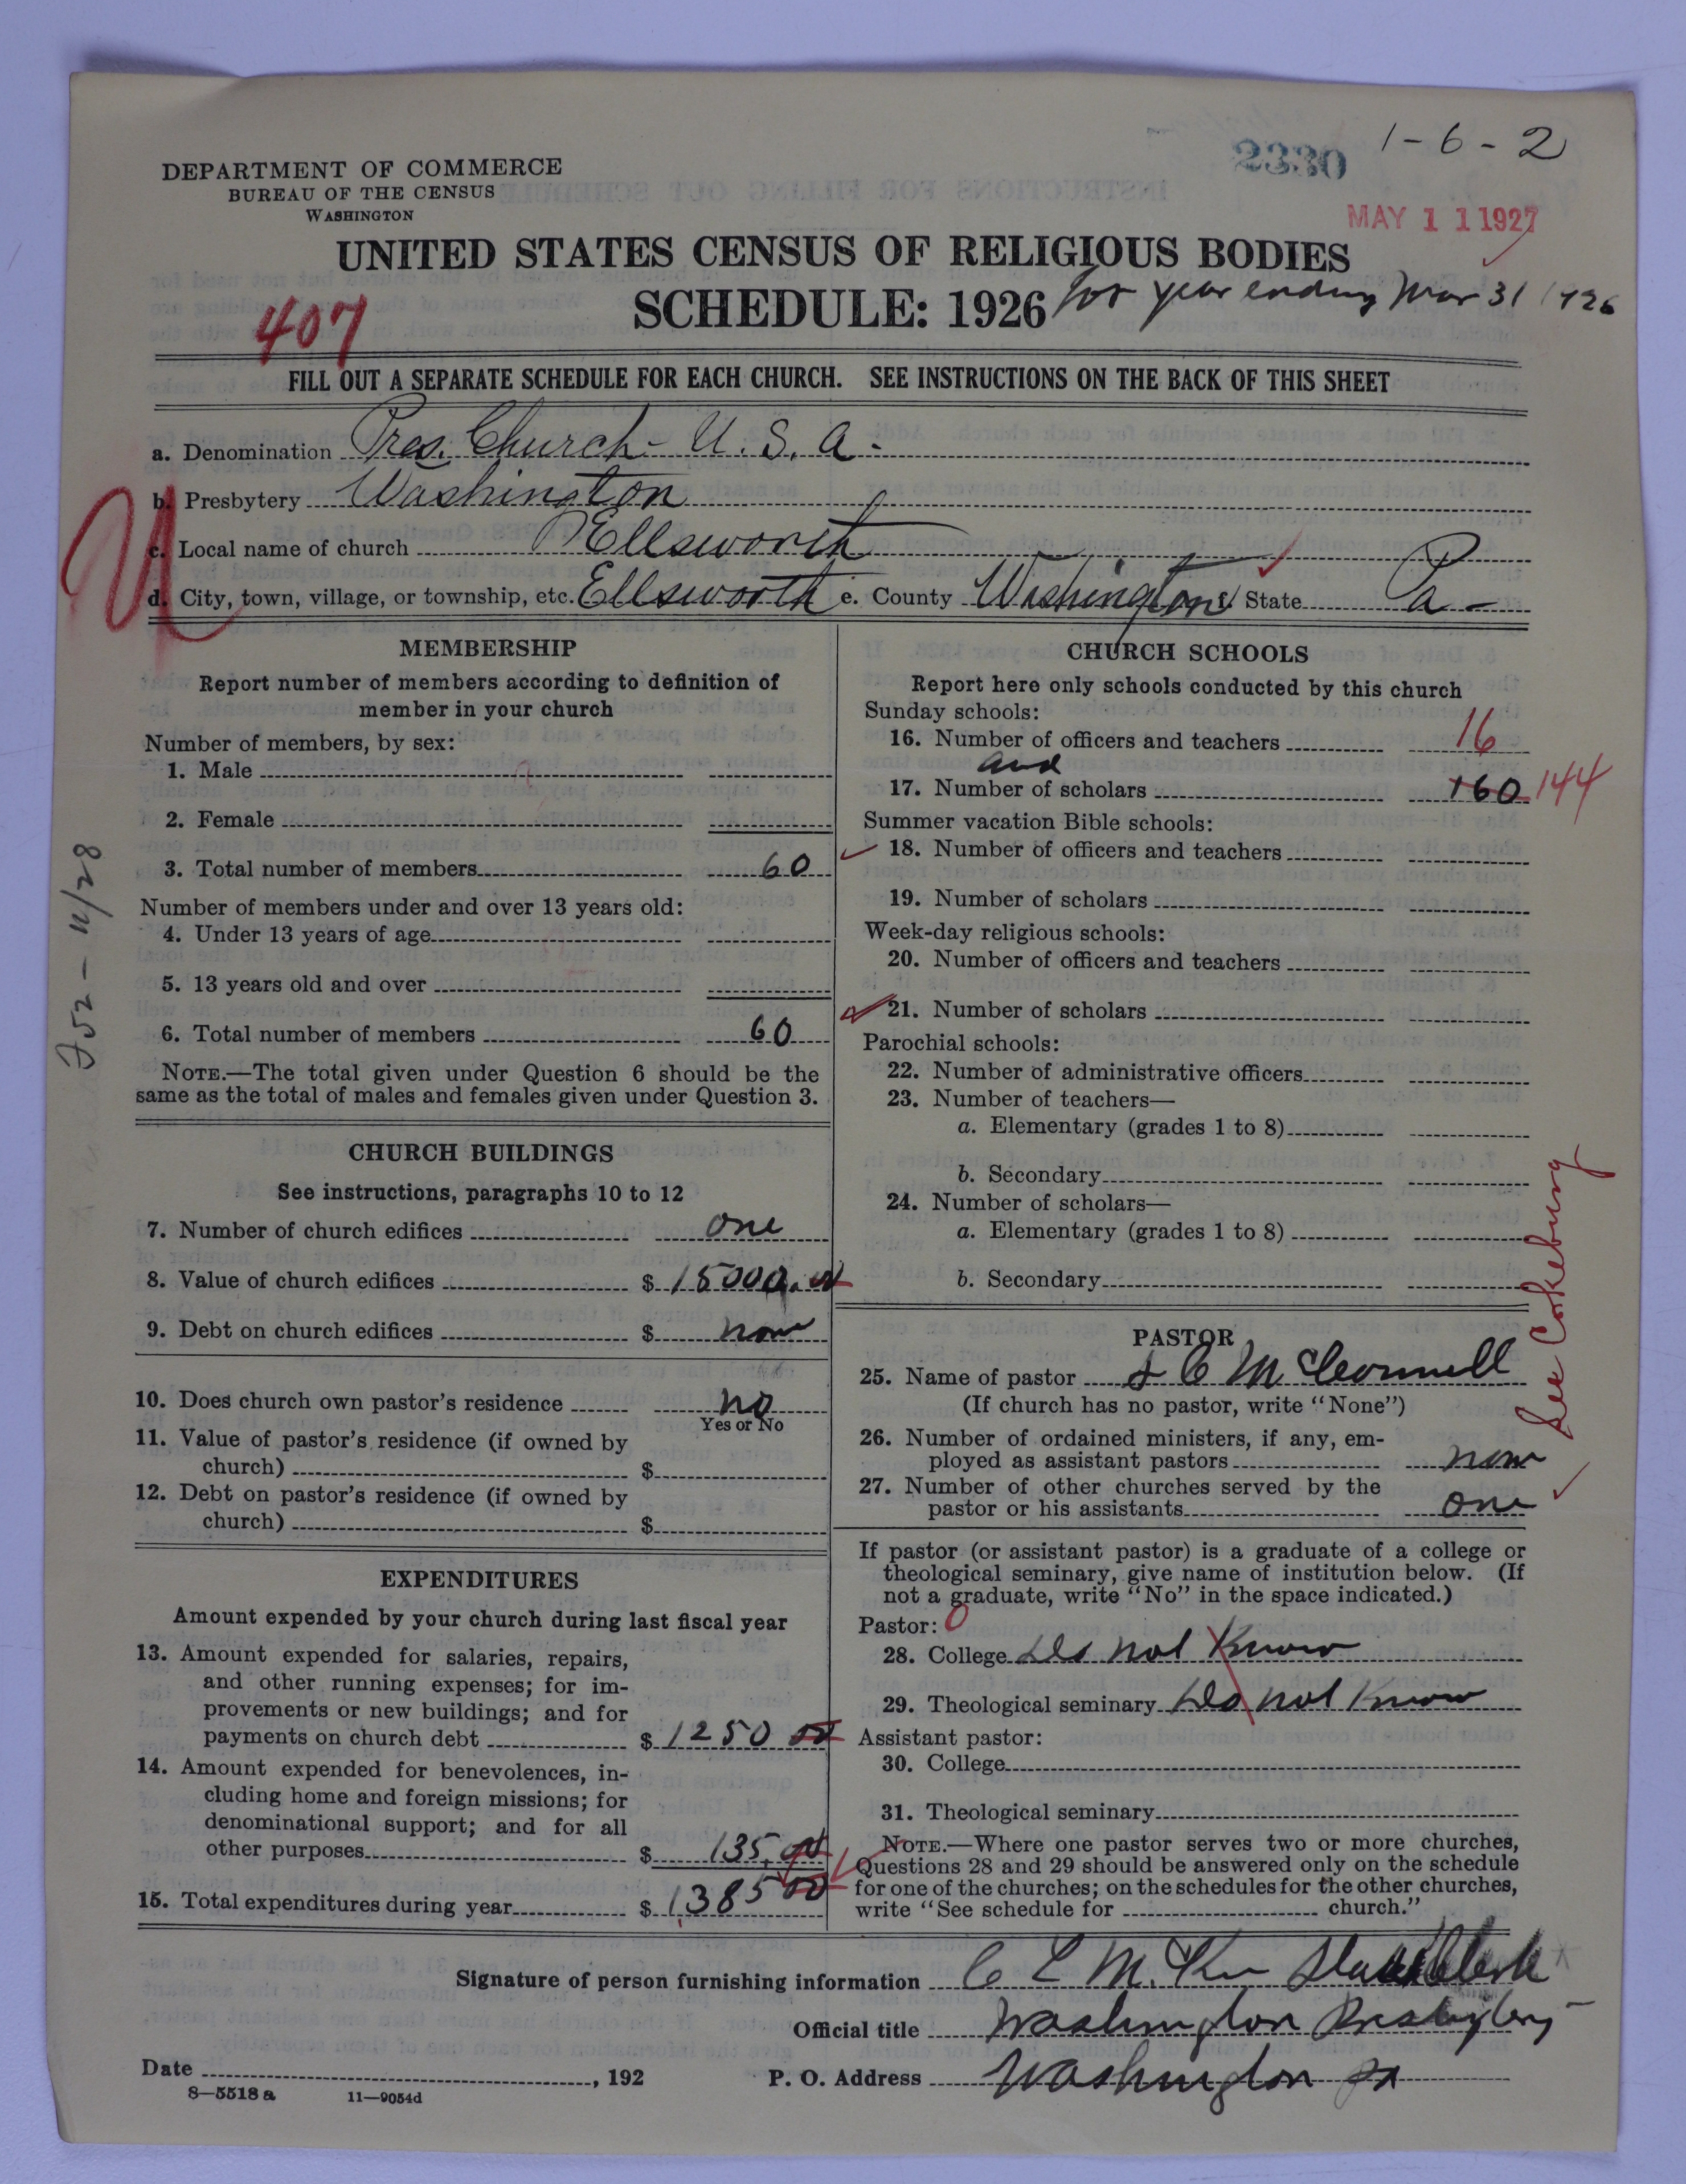 2330
1-6-2
DEPARTMENT OF COMMERCE
BUREAU OF THE CENSUS
WASHINGTON
MAY 11 1927
UNITED STATES CENSUS OF RELIGIOUS BODIES
SCHEDULE: 1926 for year ending Mar 31 1926
407
FILL OUT A SEPARATE SCHEDULE FOR EACH CHURCH. SEE INSTRUCTIONS ON THE BACK OF THIS SHEET
a. Denomination Pres. Church - U. S. A -
b. Presbytery Washington
c. Local name of church Ellsworth
d. City, town, village, or township, etc. Ellsworth e. County Washington f. State Pa -
U
MEMBERSHIP
Report number of members according to definition of
member in your church
Number of members, by sex:
1. Male
2. Female
3. Total number of members 60
Number of members under and over 13 years old:
4. Under 13 years of age
5. 13 years old and over
6. Total number of members 60
NOTE.—The total given under Question 6 should be the
same as the total of males and females given under Question 3.
CHURCH BUILDINGS
See instructions, paragraphs 10 to 12
7. Number of church edifices one
8. Value of church edifices $ 15000.00
9. Debt on church edifices $ none
10. Does church own pastor's residence no
Yes or No
11. Value of pastor's residence (if owned by
church) $
12. Debt on pastor's residence (if owned by
church) $
EXPENDITURES
Amount expended by your church during last fiscal year
13. Amount expended for salaries, repairs,
and other running expenses; for im-
provements or new buildings; and for
payments on church debt $ 1250 00
14. Amount expended for benevolences, in-
cluding home and foreign missions; for
denominational support; and for all
other purposes $ 135.00
15. Total expenditures during year $ 1385 00
CHURCH SCHOOLS
Report here only schools conducted by this church
Sunday schools:
16. Number of officers and teachers 16
and
17. Number of scholars 160 144
Summer vacation Bible schools:
18. Number of officers and teachers
19. Number of scholars
Week-day religious schools:
20. Number of officers and teachers
21. Number of scholars
Parochial schools:
22. Number of administrative officers
23. Number of teachers—
a. Elementary (grades 1 to 8)
b. Secondary
24. Number of scholars—
a. Elementary (grades 1 to 8)
b. Secondary
See Cokeburg
PASTOR
25. Name of pastor C McConnell
(If church has no pastor, write "None")
26. Number of ordained ministers, if any, em-
ployed as assistant pastors none
27. Number of other churches served by the
pastor or his assistants one
If pastor (or assistant pastor) is a graduate of a college or
theological seminary, give name of institution below. (If
not a graduate, write "No" in the space indicated.)
Pastor: 0
28. College Do not Know
29. Theological seminary Do not Know
Assistant pastor:
30. College
31. Theological seminary
NOTE.—Where one pastor serves two or more churches,
Questions 28 and 29 should be answered only on the schedule
for one of the churches; on the schedules for the other churches,
write "See schedule for church."
Signature of person furnishing information C L McKee Stated Clerk
Official title Washington Presbytery
Date , 192
P. O. Address Washington Pa
8—5518a 11—9054d